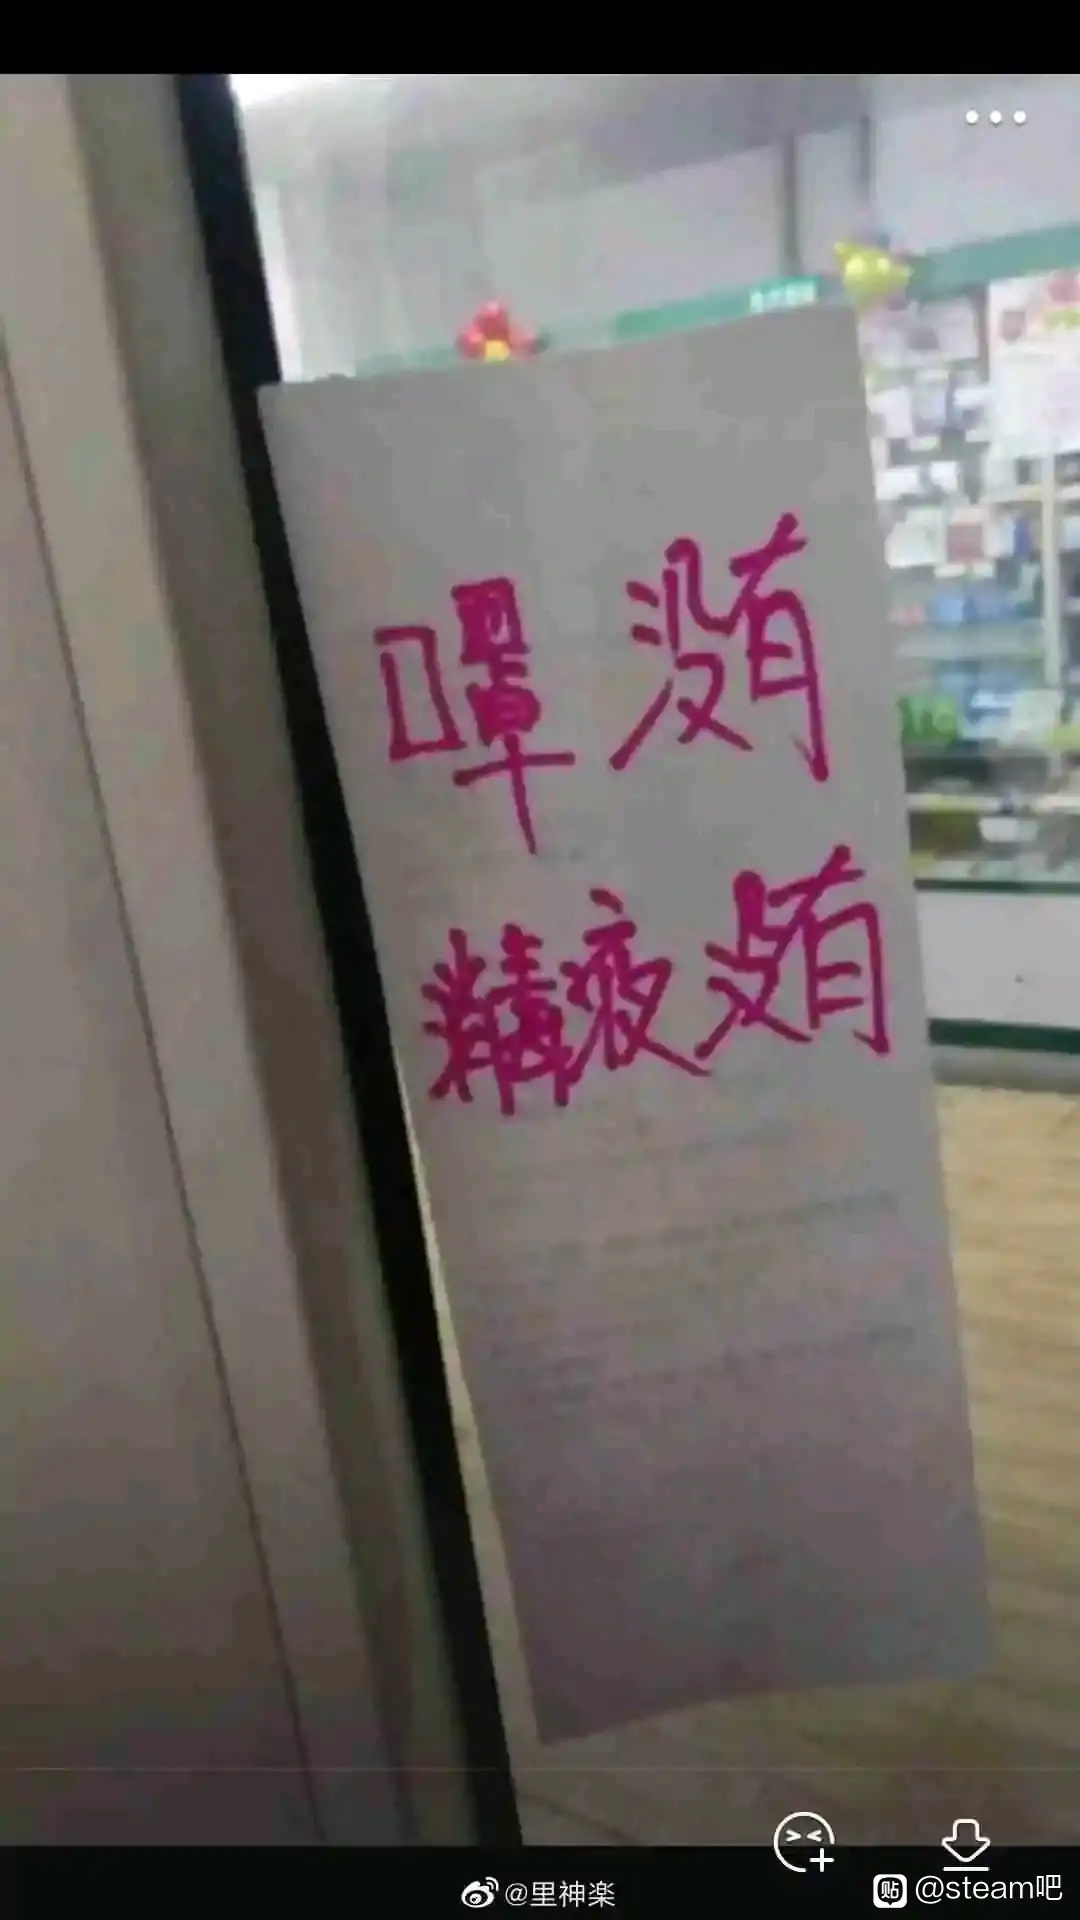 口罩没有
精液没有
@里神楽
贴 @steam吧